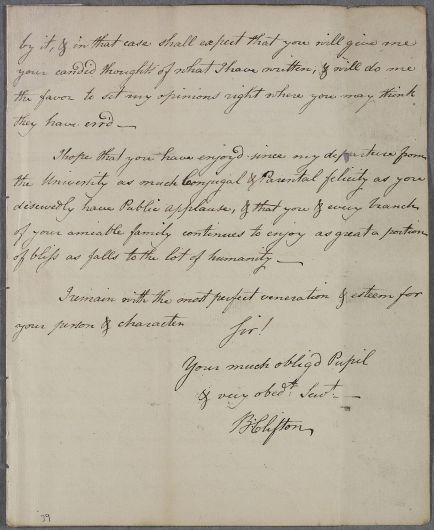 by it, & in that case shall expect that you will give me
your candid thoughts of what I have written, & will do me
the favor to set my opinions right where you may think
they have err'd —
I hope that you have enjoy'd since my departure from
the University as much Conjugal & Parental felicity as you
deservedly have Public applause, & that you & every branch
of your amiable family continues to enjoy as great a portion
of bliss as falls to the lot of humanity —
I remain with the most perfect veneration & esteem for
your person & character
Sir!
Your much oblig'd Pupil
& very obedt. Servt. —
B: Clifton
39